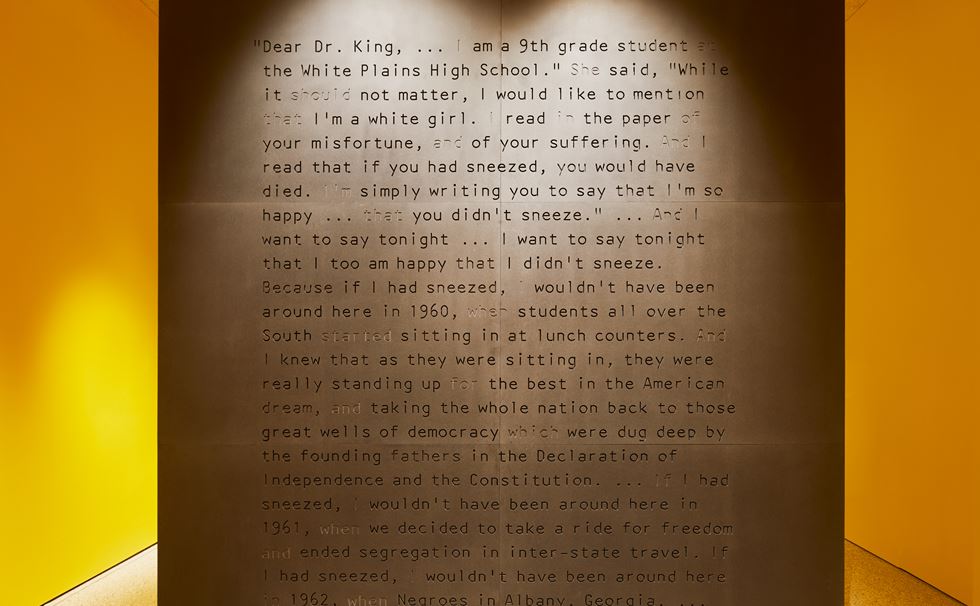 "Dear Dr. King, ... I am a 9th grade student at
the White Plains High School." She said, "While
it should not matter, I would like to mention
that I'm a white girl. I read in the paper of
your misfortune, and of your suffering. And I
read that if you had sneezed, you would have
died. I'm simply writing you to say that I'm so
happy ... that you didn't sneeze." ... And I
want to say tonight ... I want to say tonight
that I too am happy that I didn't sneeze.
Because if I had sneezed, I wouldn't have been
around here in 1960, when students all over the
South started sitting in at lunch counters. And
I knew that as they were sitting in, they were
really standing up for the best in the American
dream, and taking the whole nation back to those
great wells of democracy which were dug deep by
the founding fathers in the Declaration of
Independence and the Constitution. ... If I had
sneezed, I wouldn't have been around here in
1961, when we decided to take a ride for freedom
and ended segregation in inter-state travel. If
I had sneezed, I wouldn't have been around here
in 1962, when Negroes in Albany, Georgia, ...